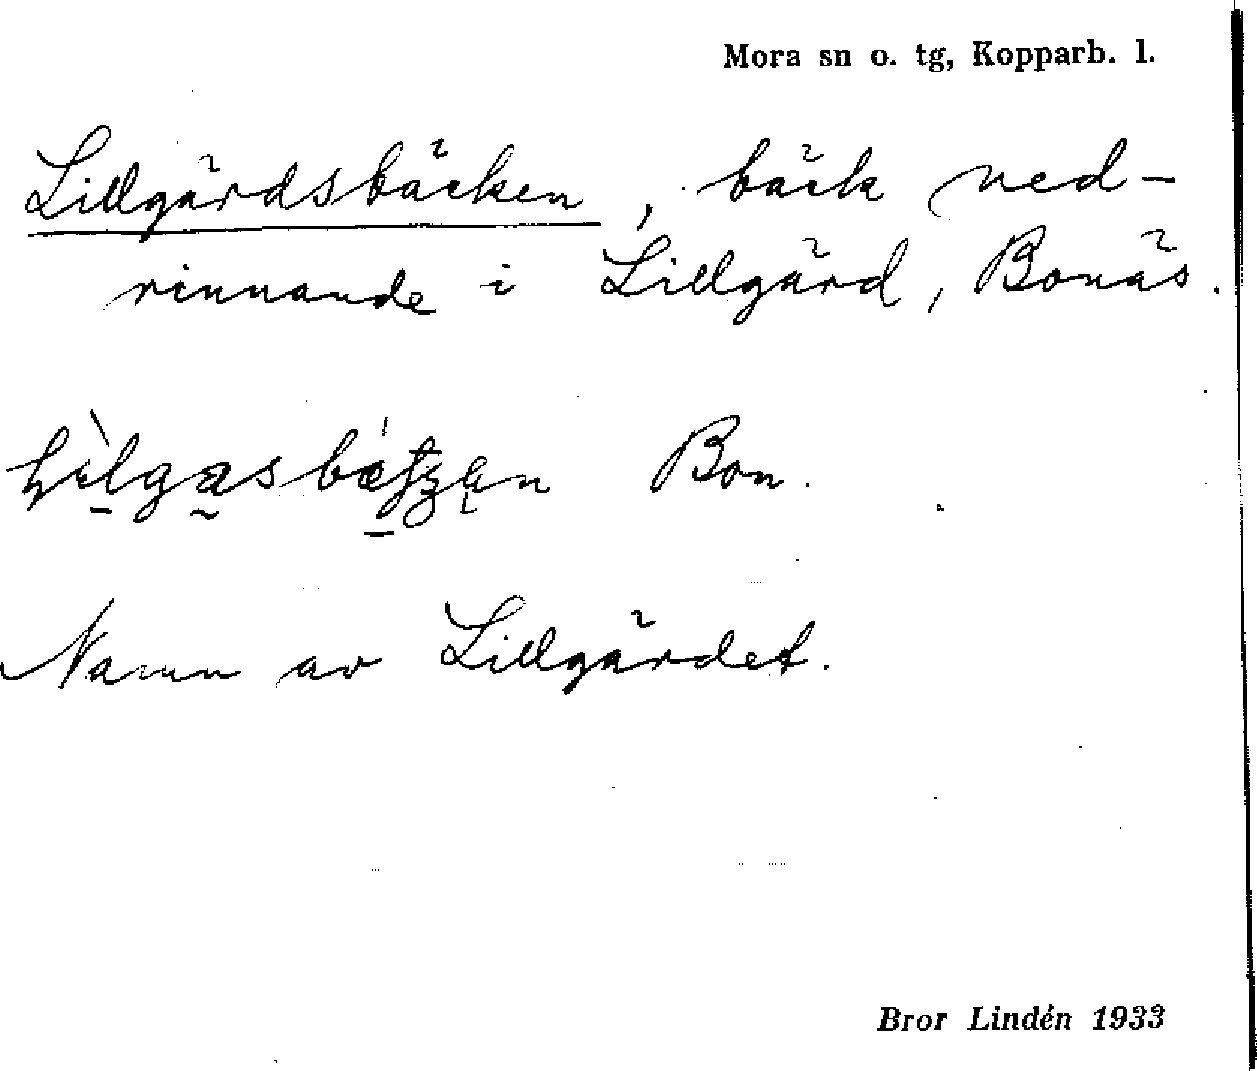 Mora sn o. tg, Kopparb. l.
Lillgärdsbäcken, bäck ned-
rinnande i Lillgärd, Bonäs.
Bon.
Namn av Lillgärdet.
Bror Lindén 1933